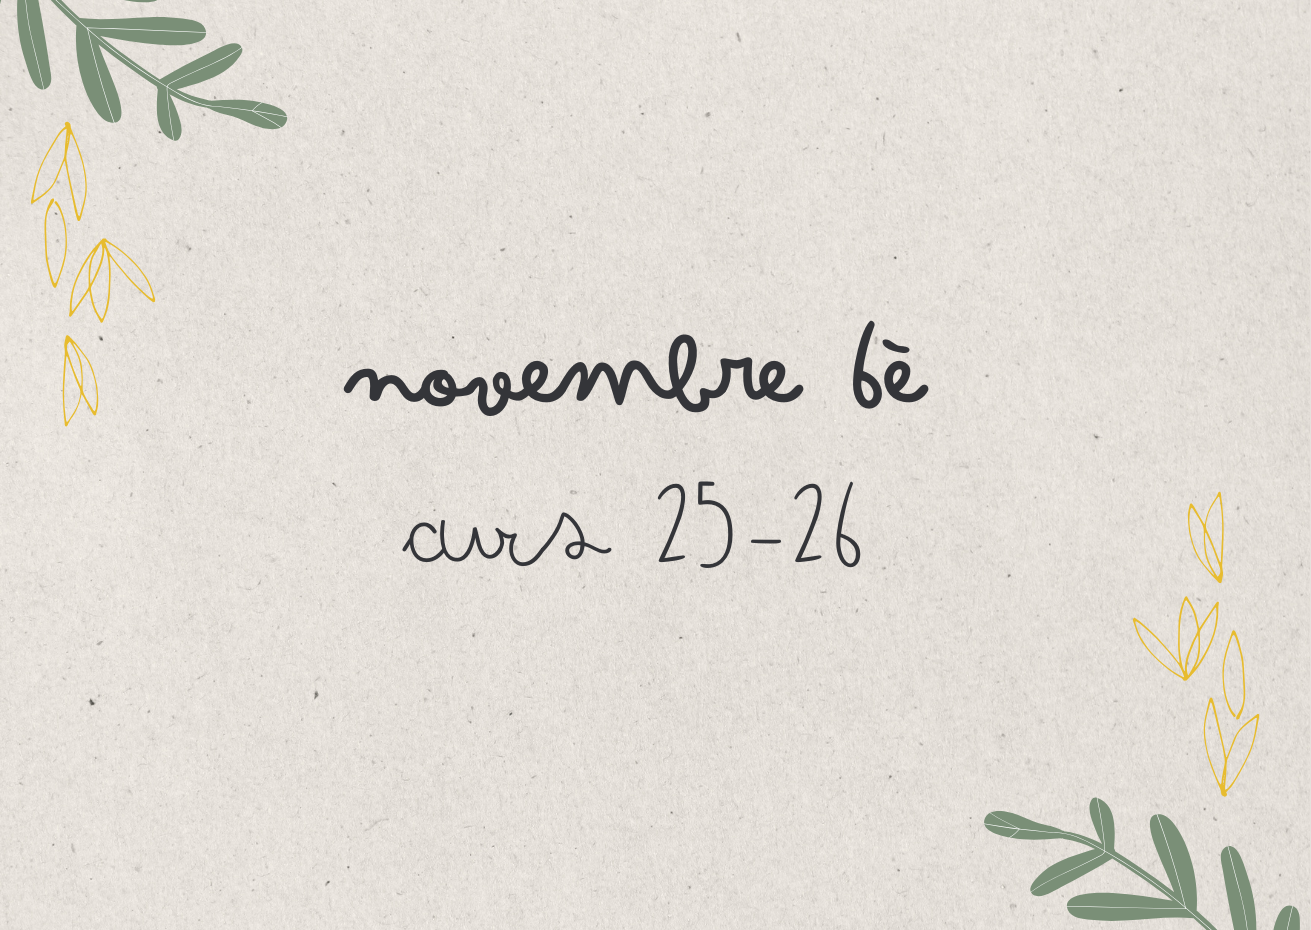 novembre 6è
curs 25-26